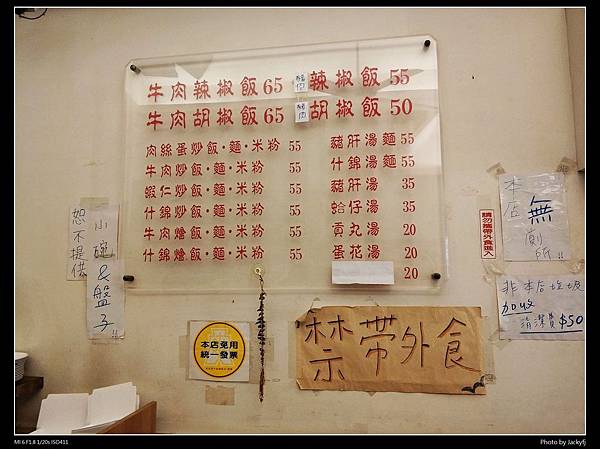 牛肉辣椒飯 65
豬肉辣椒飯 55
牛肉胡椒飯 65
豬肉胡椒飯 50
肉絲蛋炒飯·麵·米粉 55
牛肉炒飯·麵·米粉 55
蝦仁炒飯·麵·米粉 55
什錦炒飯·麵·米粉 55
牛肉燴飯·麵·米粉 55
什錦燴飯·麵·米粉 55
豬肝湯麵 55
什錦湯麵 55
豬肝湯 35
蛤仔湯 35
貢丸湯 20
蛋花湯 20
20
恕不提供
小碗&盤子!!
本店免用
統一發票
禁帶外食
請勿攜帶外食進入
本店
無
廁所
非本店垃圾
加收
清潔費$50
MI 6 F1.8 1/20s ISO411
Photo by Jackyfj